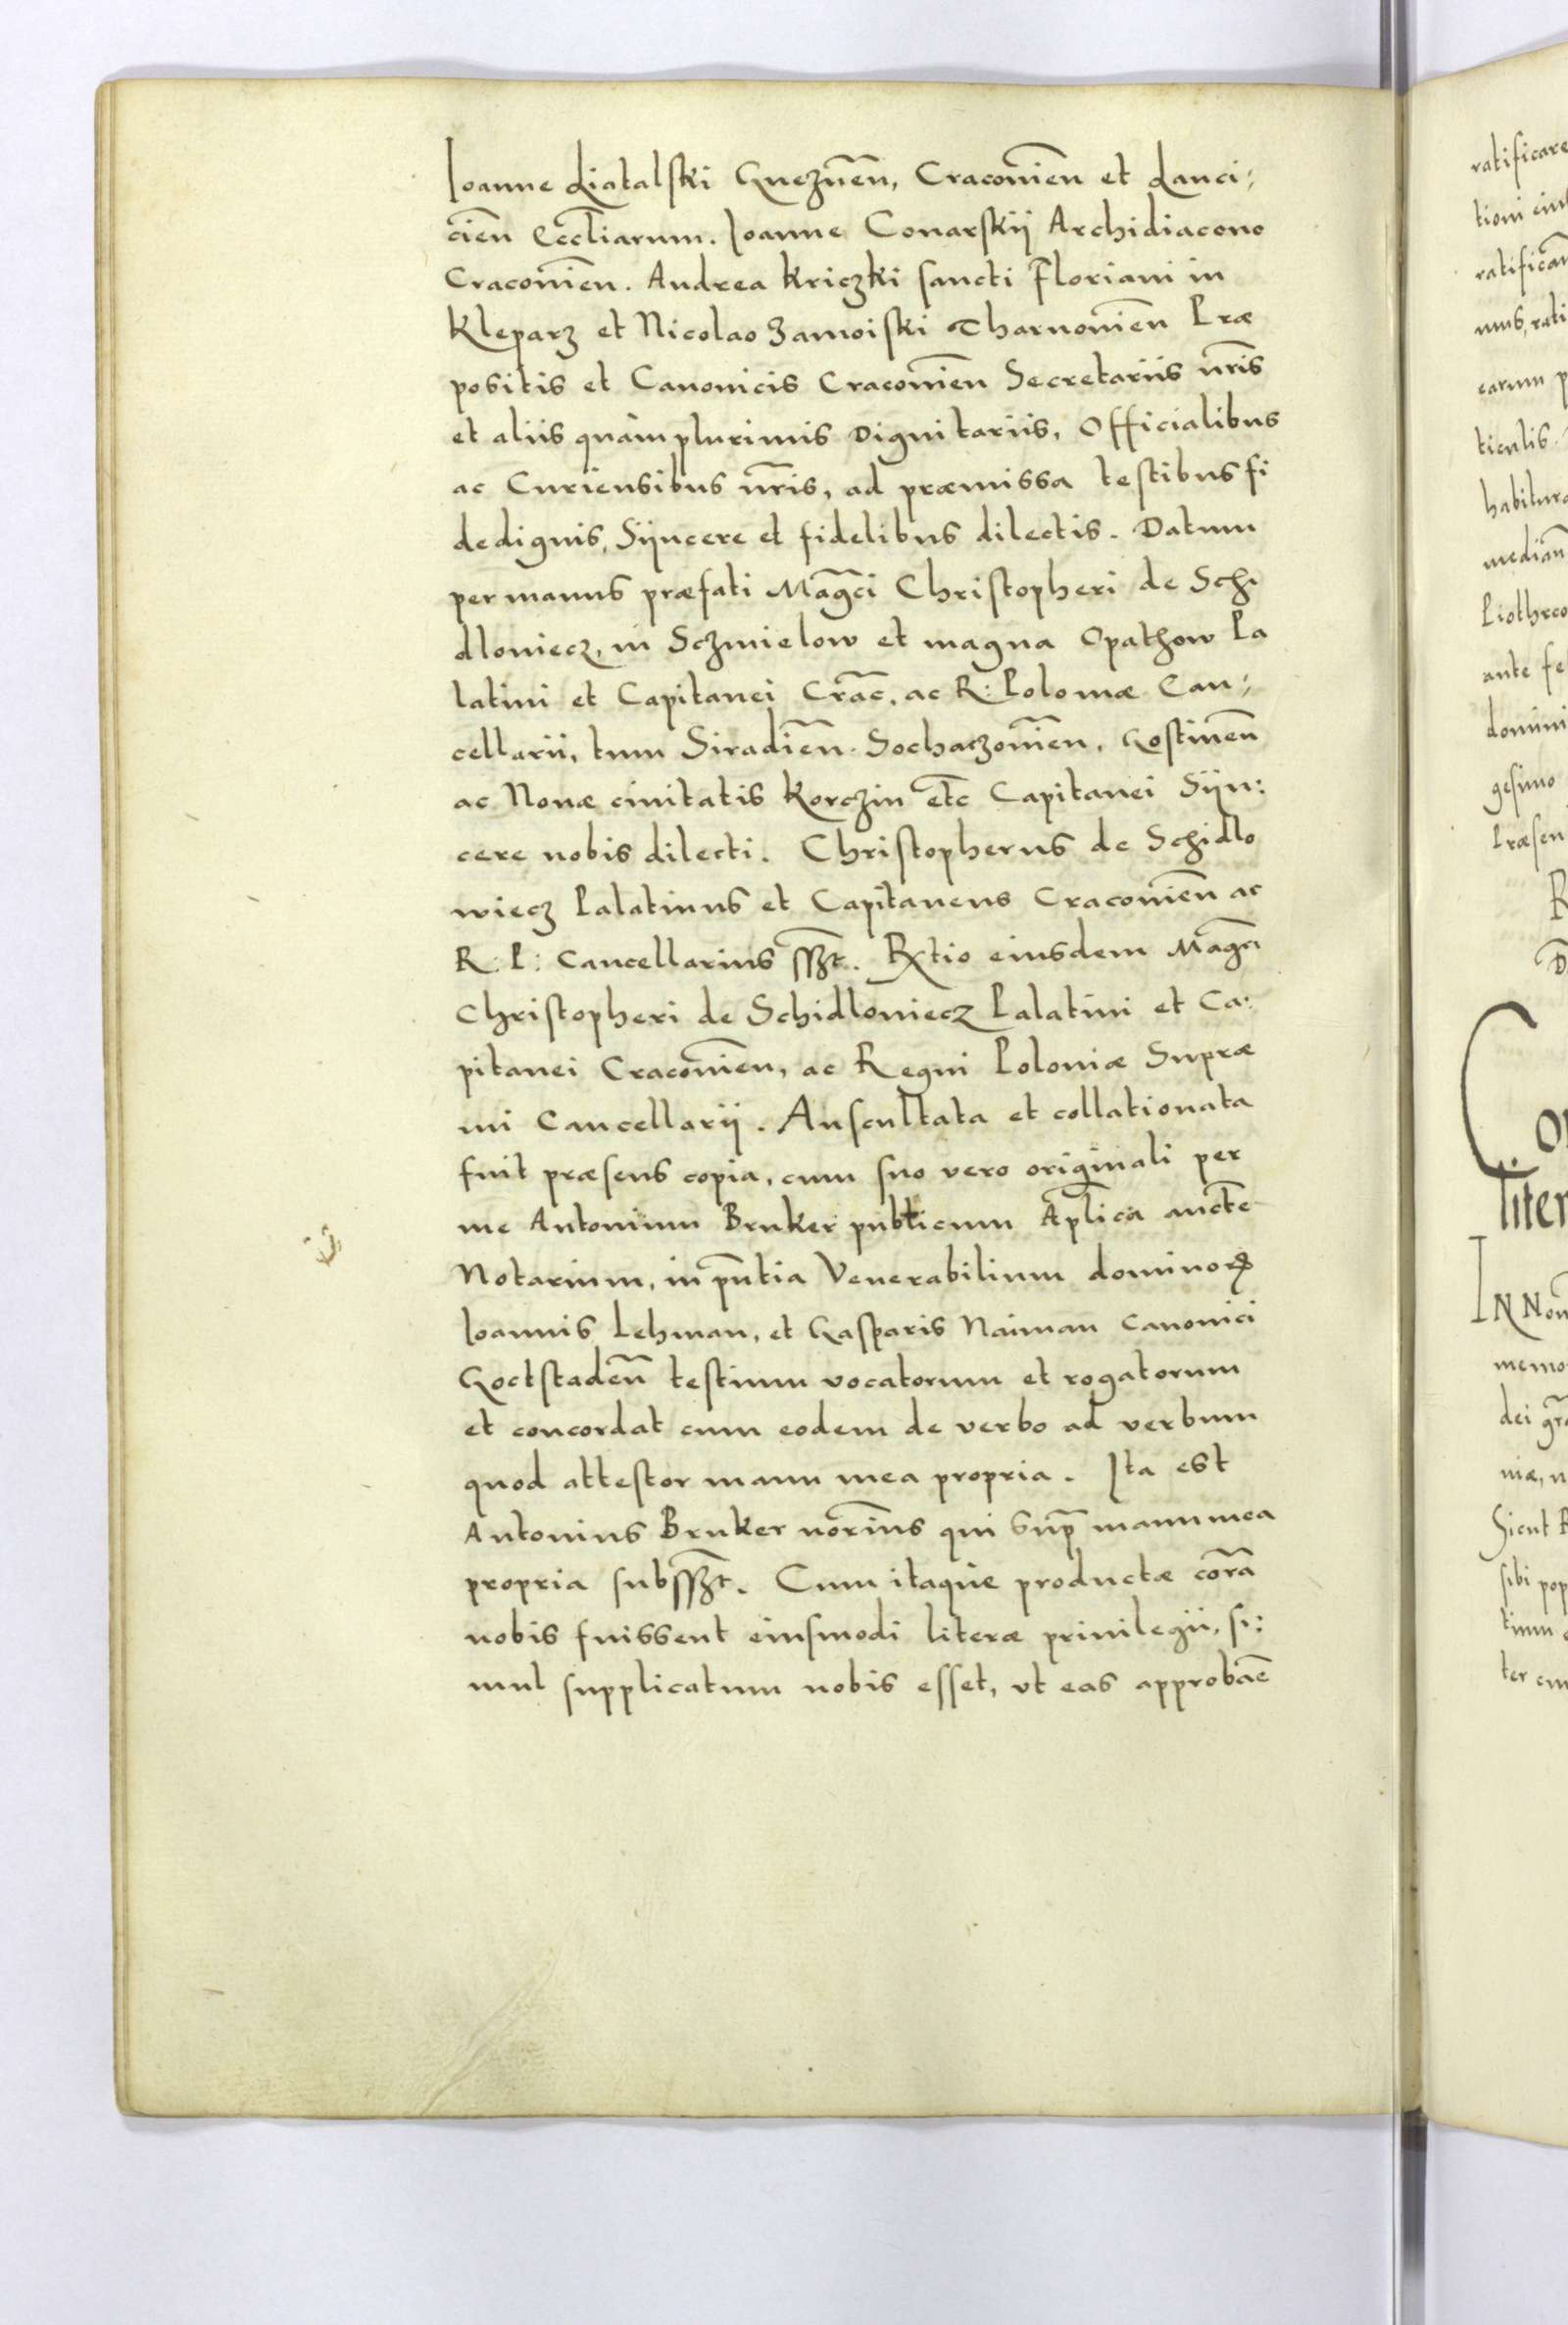 Ioanne Latalski Gneznen̄, Cracouien̄ et Lanci⸗
cien̄ Eccl̄iarum. Ioanne Conarskij Archidiacono
Cracouien̄. Andrea Kriczki sancti Floriani in
Kleparz et Nicolao Zamoiski Tharnouien̄ Præ
positis et Canonicis Cracouien̄ Secretariis nr̄is
et aliis quàmplurimis Dignitariis, Officialibus
ac Curiensibus nr̄is, ad præmissa testibus fi
dedignis, Sijncere et fidelibus dilectis. Datum
per manus præfati Magc̄i Christopheri de Schi
dlouiecz, in Sczmielow et magna Opathow Pa
latini et Capitanei Crac̄. ac R: Poloniæ Can⸗
cellarii, tum Siradien̄. Sochaczouien̄, Gostinen̄
ac Nouæ ciuitatis Korczin etc̄ Capitanei Sijn:
cere nobis dilecti. Christopherus de Schidlo
wiecz Palatinus et Capitaneus Cracouien̄ ac
R: P: Cancellarius ssz̄t. Rx̄tio eiusdem Magc̄i
Christopheri de Schidlouiecz Palatini et Ca:
pitanei Cracouien̄, ac Regni Poloniæ Supræ
mi Cancellarij. Auscultata et collationata
fuit præsens copia, cum suo vero originali per
me Antonium Bruker publicum Ap̄lica auct̄e
Notarium, in pn̄tia Venerabilium dominoꝝ
Ioannis Lehman, et Gasparis Naiman Canonici
Goctstaden̄ testium vocatorum et rogatorum
et concordat cum eodem de verbo ad verbum
quod attestor manu mea propria. Ita est
Antonius Bruker nor̄ius qui sup̄ manu mea
propria subssz̄t. Cum itaque productæ corā
nobis fuissent eiusmodi literæ priuilegii, si:
mul supplicatum nobis esset, vt eas approbāe
ratificare
tioni
ratifican̄
mus, rati
earum p
ticulis.
habitura
median̄
Piothrco
ante fe
domini
gesimo
Præsen
R
D̄
Co
liter
IN Nom̄
memo
dei gr̄a
niæ,
Sicut R
sibi pop
tium
ter cu